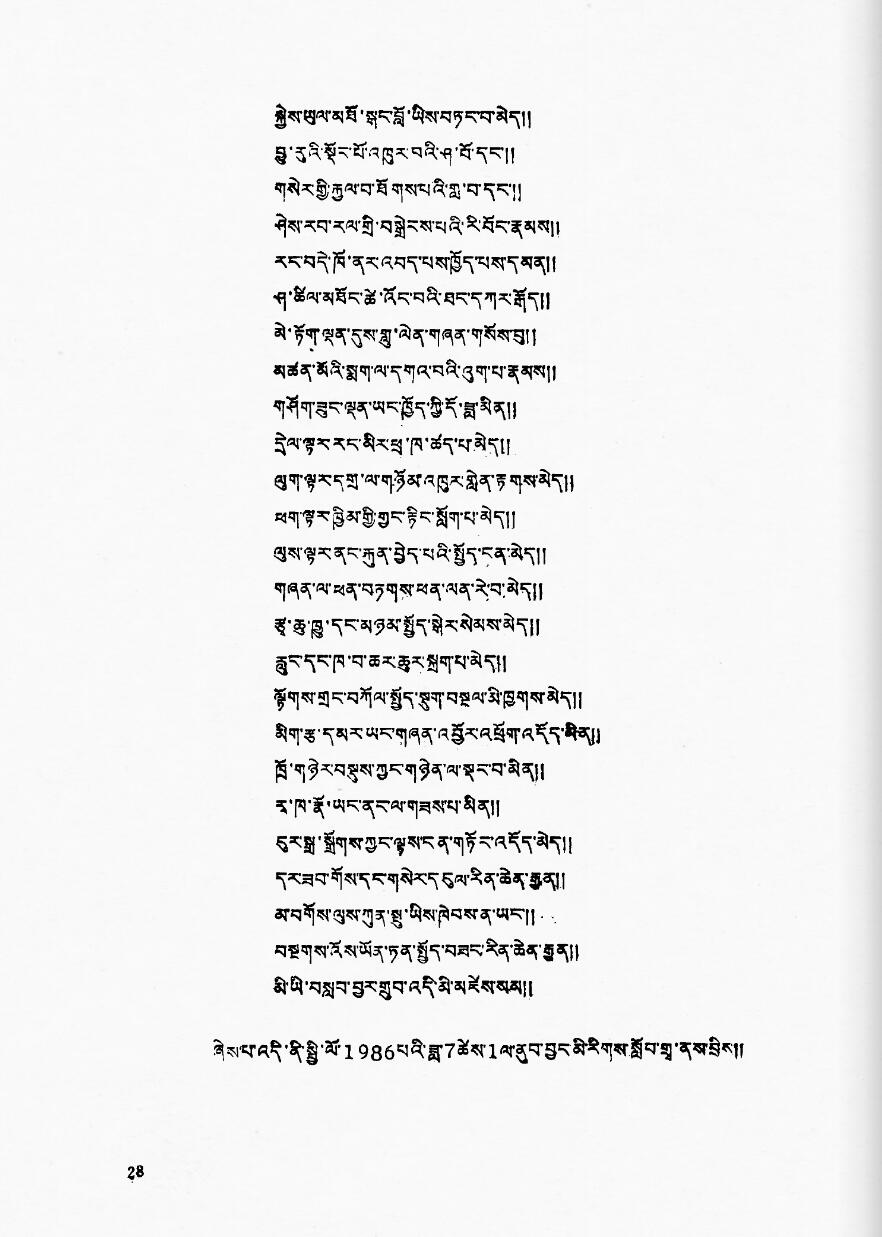 སྐྱེས་ཡུལ་མཐོ་སྒང་བློ་ཡིས་བཏང་བ་མེད།།
བྱུ་རུའི་སྡོང་པོ་འཁུར་བའི་ཤ་བོ་དང་།།
གསེར་གྱི་རྒྱལ་བ་ཐོགས་པའི་གླ་བ་དང་།།
ཤེས་རབ་རལ་གྲི་བསྒྲེངས་པའི་རི་བོང་རྣམས།།
རང་བདེ་ཁོ་ནར་འབད་པས་ཁྱོད་པས་དམན།།
ཤ་ཚིལ་མཐོང་ཚེ་འོང་བའི་ཐང་དཀར་རྒོད།།
མེ་ཏོག་ལྡན་དུས་གླུ་ལེན་གཞན་གསོས་བུ།།
མཚན་མོའི་སྨག་ལ་དགའ་བའི་འུག་པ་རྣམས།།
གཤོག་ཟུང་ལྡན་ཡང་ཁྱོད་ཀྱི་དོ་ཟླ་མིན།།
དྲེལ་ལྟར་རང་མིར་ཕྲ་ཁ་ཚད་པ་མེད།།
ལུག་ལྟར་དགྲ་ལ་གཉོམ་འཁུར་གླེན་རྟགས་མེད།།
ཕག་ལྟར་ཁྱིམ་གྱི་ཀྱང་རྟིང་སློག་པ་མེད།།
ལུས་ལྟར་ནང་རྐུན་བྱེད་པའི་སྤྱོད་ངན་མེད།།
གཞན་ལ་ཕན་བཏགས་ཕན་ལན་རེ་བ་མེད།།
རྩྭ་ཆུ་ཁྱུ་དང་མཉམ་སྤྱོད་སྒེར་སེམས་མེད།།
རླུང་དང་ཁ་བ་ཆར་ཆུར་སྐྲག་པ་མེད།།
ལྟོགས་གྲང་བཀོལ་སྤྱོད་སྡུག་བསྔལ་མི་ཁྱགས་མེད།།
མིག་རྩ་དམར་ཡང་གཞན་འབྱོར་འཕྲོག་འདོད་མིན།།
ཁྲོ་གཉེར་བསྡུས་ཀྱང་གཉེན་ལ་སྡང་བ་མིན།།
རྭ་ཁ་རྣོ་ཡང་ནང་ལ་གཟས་པ་མིན།།
ངུར་སྒྲ་སྒྲོགས་ཀྱང་ལྟས་ངན་གཏོང་འདོད་མེད།།
དར་ཟབ་གོས་དང་གསེར་དངུལ་རིན་ཆེན་རྒྱན།།
མ་བགོས་ལུས་ཀུན་སྤུ་ཡིས་ཁེབས་ན་ཡང་།།
བསྔགས་འོས་ཡོན་ཏན་སྤྱོད་བཟང་རིན་ཆེན་རྒྱན།།
མི་ཡི་བསླབ་བྱར་གྲུབ་འདི་མི་མཛེས་སམ།།
ཞེས་པ་འདི་ནི་སྤྱི་ལོ་1986པའི་ཟླ་7ཚེས་1ལ་ནུབ་བྱང་མི་རིགས་སློབ་གྲྭ་ནས་བྲིས།།
28